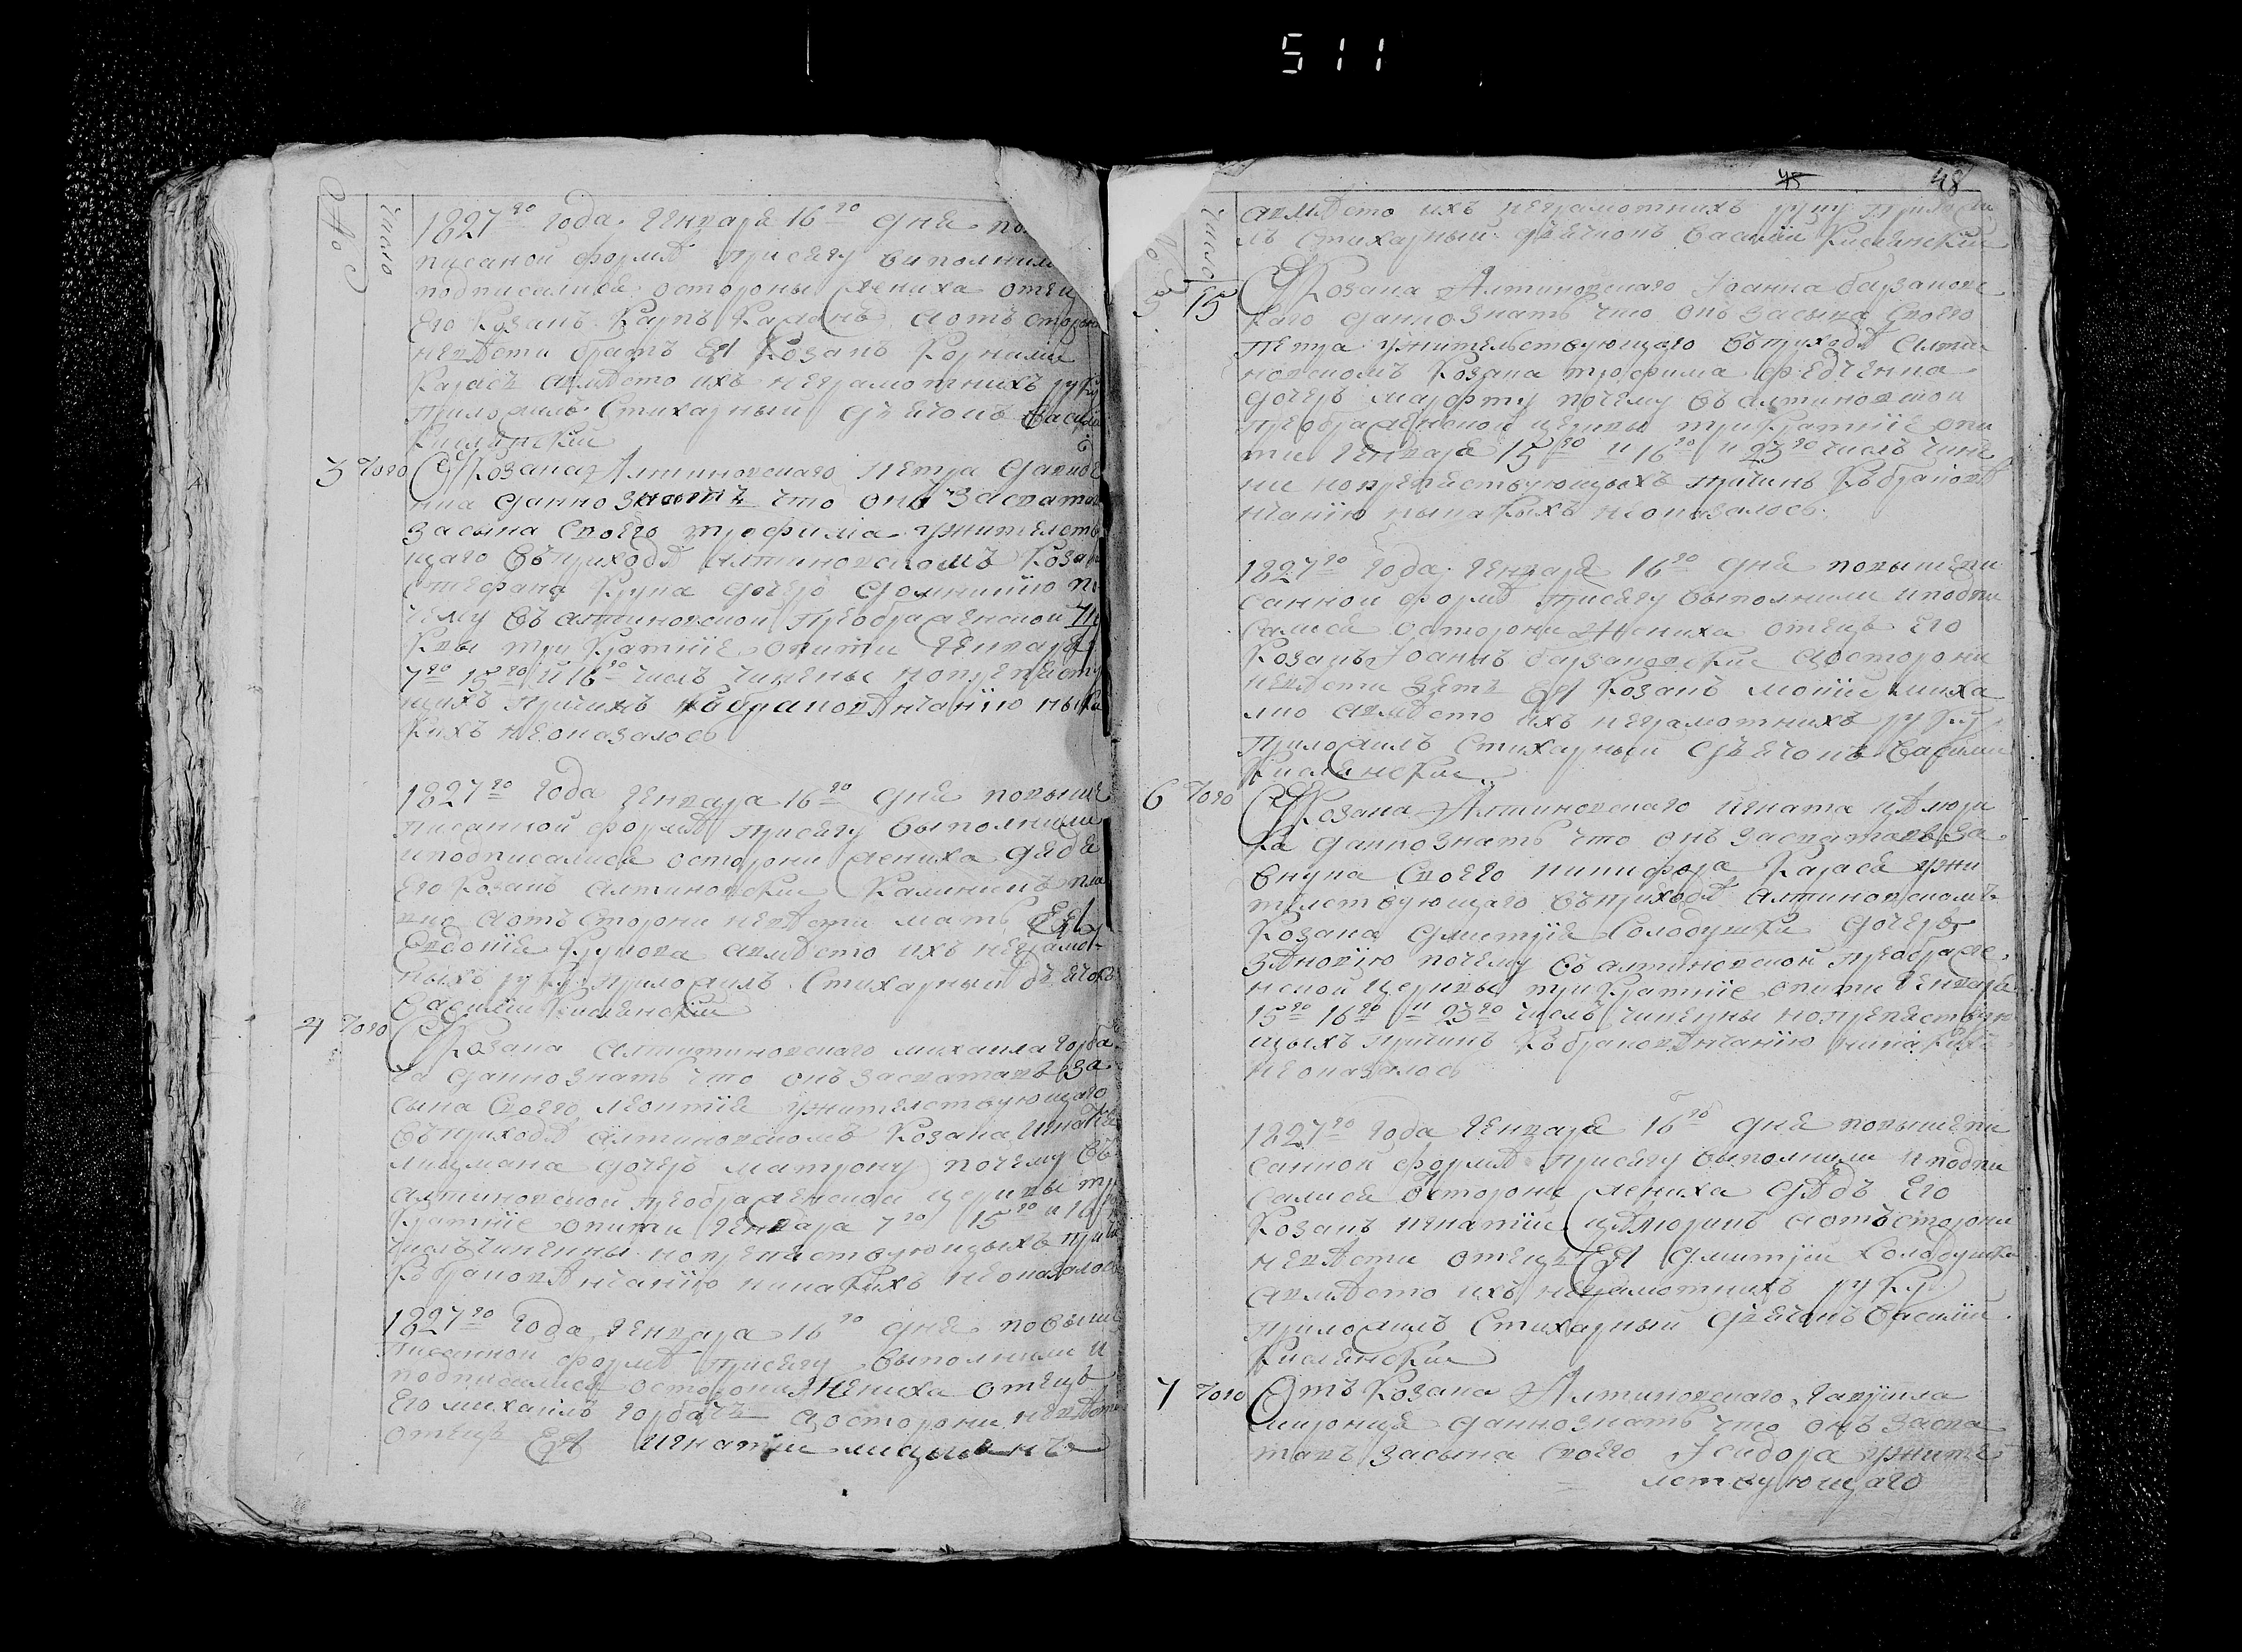 511
48
число
1827го года Генваря 16го дня по
писаной формѣ присягу виполнили
подписалися состороны жениха отец
Его Козакъ Карпъ аотъ сторон
невѣсти братъ Ея Козакъ Корнилий
Карась авмѣсто ихъ неграмотнихъ руку
приложилъ Стихарный дьячокъ Василій
Кислянскій
3 7го Отъ Козака Алтиновского Петра
данно знать что онъ засвата
засына своего трофима ужителств
щаго въ приходѣ Алтиновскомъ Коза
стефана Крупа дочерь домникию по
чему въ алтиновской Преображенской Це
ркви три Кратніе опити Генваря
7го 15го и 16го числъ чинены нопрепяству
щихъ причинъ Къ браковѣнчанію ника
Кихъ неоказалось
1827го года Генваря 16го дня повише
писанной формѣ присягу выполнили
иподписалися состорони жениха
Его Козакъ Алтиновский Калиникъ
аотъ сторони невѣсти мать Ея
Евдокія Крупова авмѣсто ихъ неграмот
ныхъ руку приложилъ Стихарный дьячокъ
Василій Кислянскій
4 7го Отъ Козака Алтитиновского михаила горба
ча данно знать что онъ засватавъ за
сына своего леонтія ужителствующаго
въ приходѣ Алтиновскомъ Козака Игнатія
лицмана дочерь матрону почему въ
алтиновской преображенской церквы три
Кратніе опити Генваря 7го 15го и 16го
числъ чиненны нопрепяствующыхъ причи
Къ браковѣнчанію никакихъ неоказалось
1827го года Генваря 16го дня повыше
писанной формѣ присягу выполнили и
подписалися состорони жениха отецъ
Его михаилъ горбачъ аосторони невѣсти
отецъ Ея Игнатий лицманъ
48
число
авмѣсто ихъ неграмотнихъ руку приложи
лъ Стихарный дьячокъ Василій Кислянскій
5 15 Отъ Козака Алтиновского Іоанна барановс
Кого данно знать что онъ засына своего
Петра ужительствующаго въ приходѣ Алти
новскомъ Козака трофима федченка
дочерь марфту почему въ алтиновской
преображенской церкви три Кратніе опи
ти Генваря 15го и 16го и 23го числъ чине
ни нопрепяствующыхъ причинъ Къ браковѣ
нчанію никакихъ неоказалось
1827го года Генваря 16го дня повышепи
санной формѣ присягу выполнили и подпи
салися состорони жениха отецъ Его
Козакъ Іоаннъ барановский аосторони
невѣсти зять Ея Козакъ мойсей миха
лко авмѣсто ихъ неграмотнихъ руку
приложилъ Стихарный дьячокъ Василий
Кислянский
6 7го Отъ Козака Алтиновского игната цѣлюри
Ка данно знать что онъ засватавъ за
внука своего никифора Карася ужи
телствующаго въ приходѣ Алтиновскомъ
Козака димитрія Солодушки дочерь
зѣновию почему въ алтиновской преображе
нской церквы три Кратніе опити Генваря
15го 16го и 23го числъ чиненны нопрепяствую
щыхъ причинъ Къ браковѣнчанію никакихъ
неоказалось
1827го года Генваря 16го дня повышепи
санной формѣ присягу выполнили и подпи
салися состороны жениха дѣдъ Его
Козакъ игнатий цѣлюрикъ аотъ сторони
невѣсти отецъ Ея димитрий Солодушка
авмѣсто ихъ неграмотнихъ руку
приложилъ Стихарный дьячокъ Василій
Кислянский
7 7го Отъ Козака Алтиновского гавриила
данно знать что онъ засва
тавъ засына своего Ісидора ужите
лствующаго